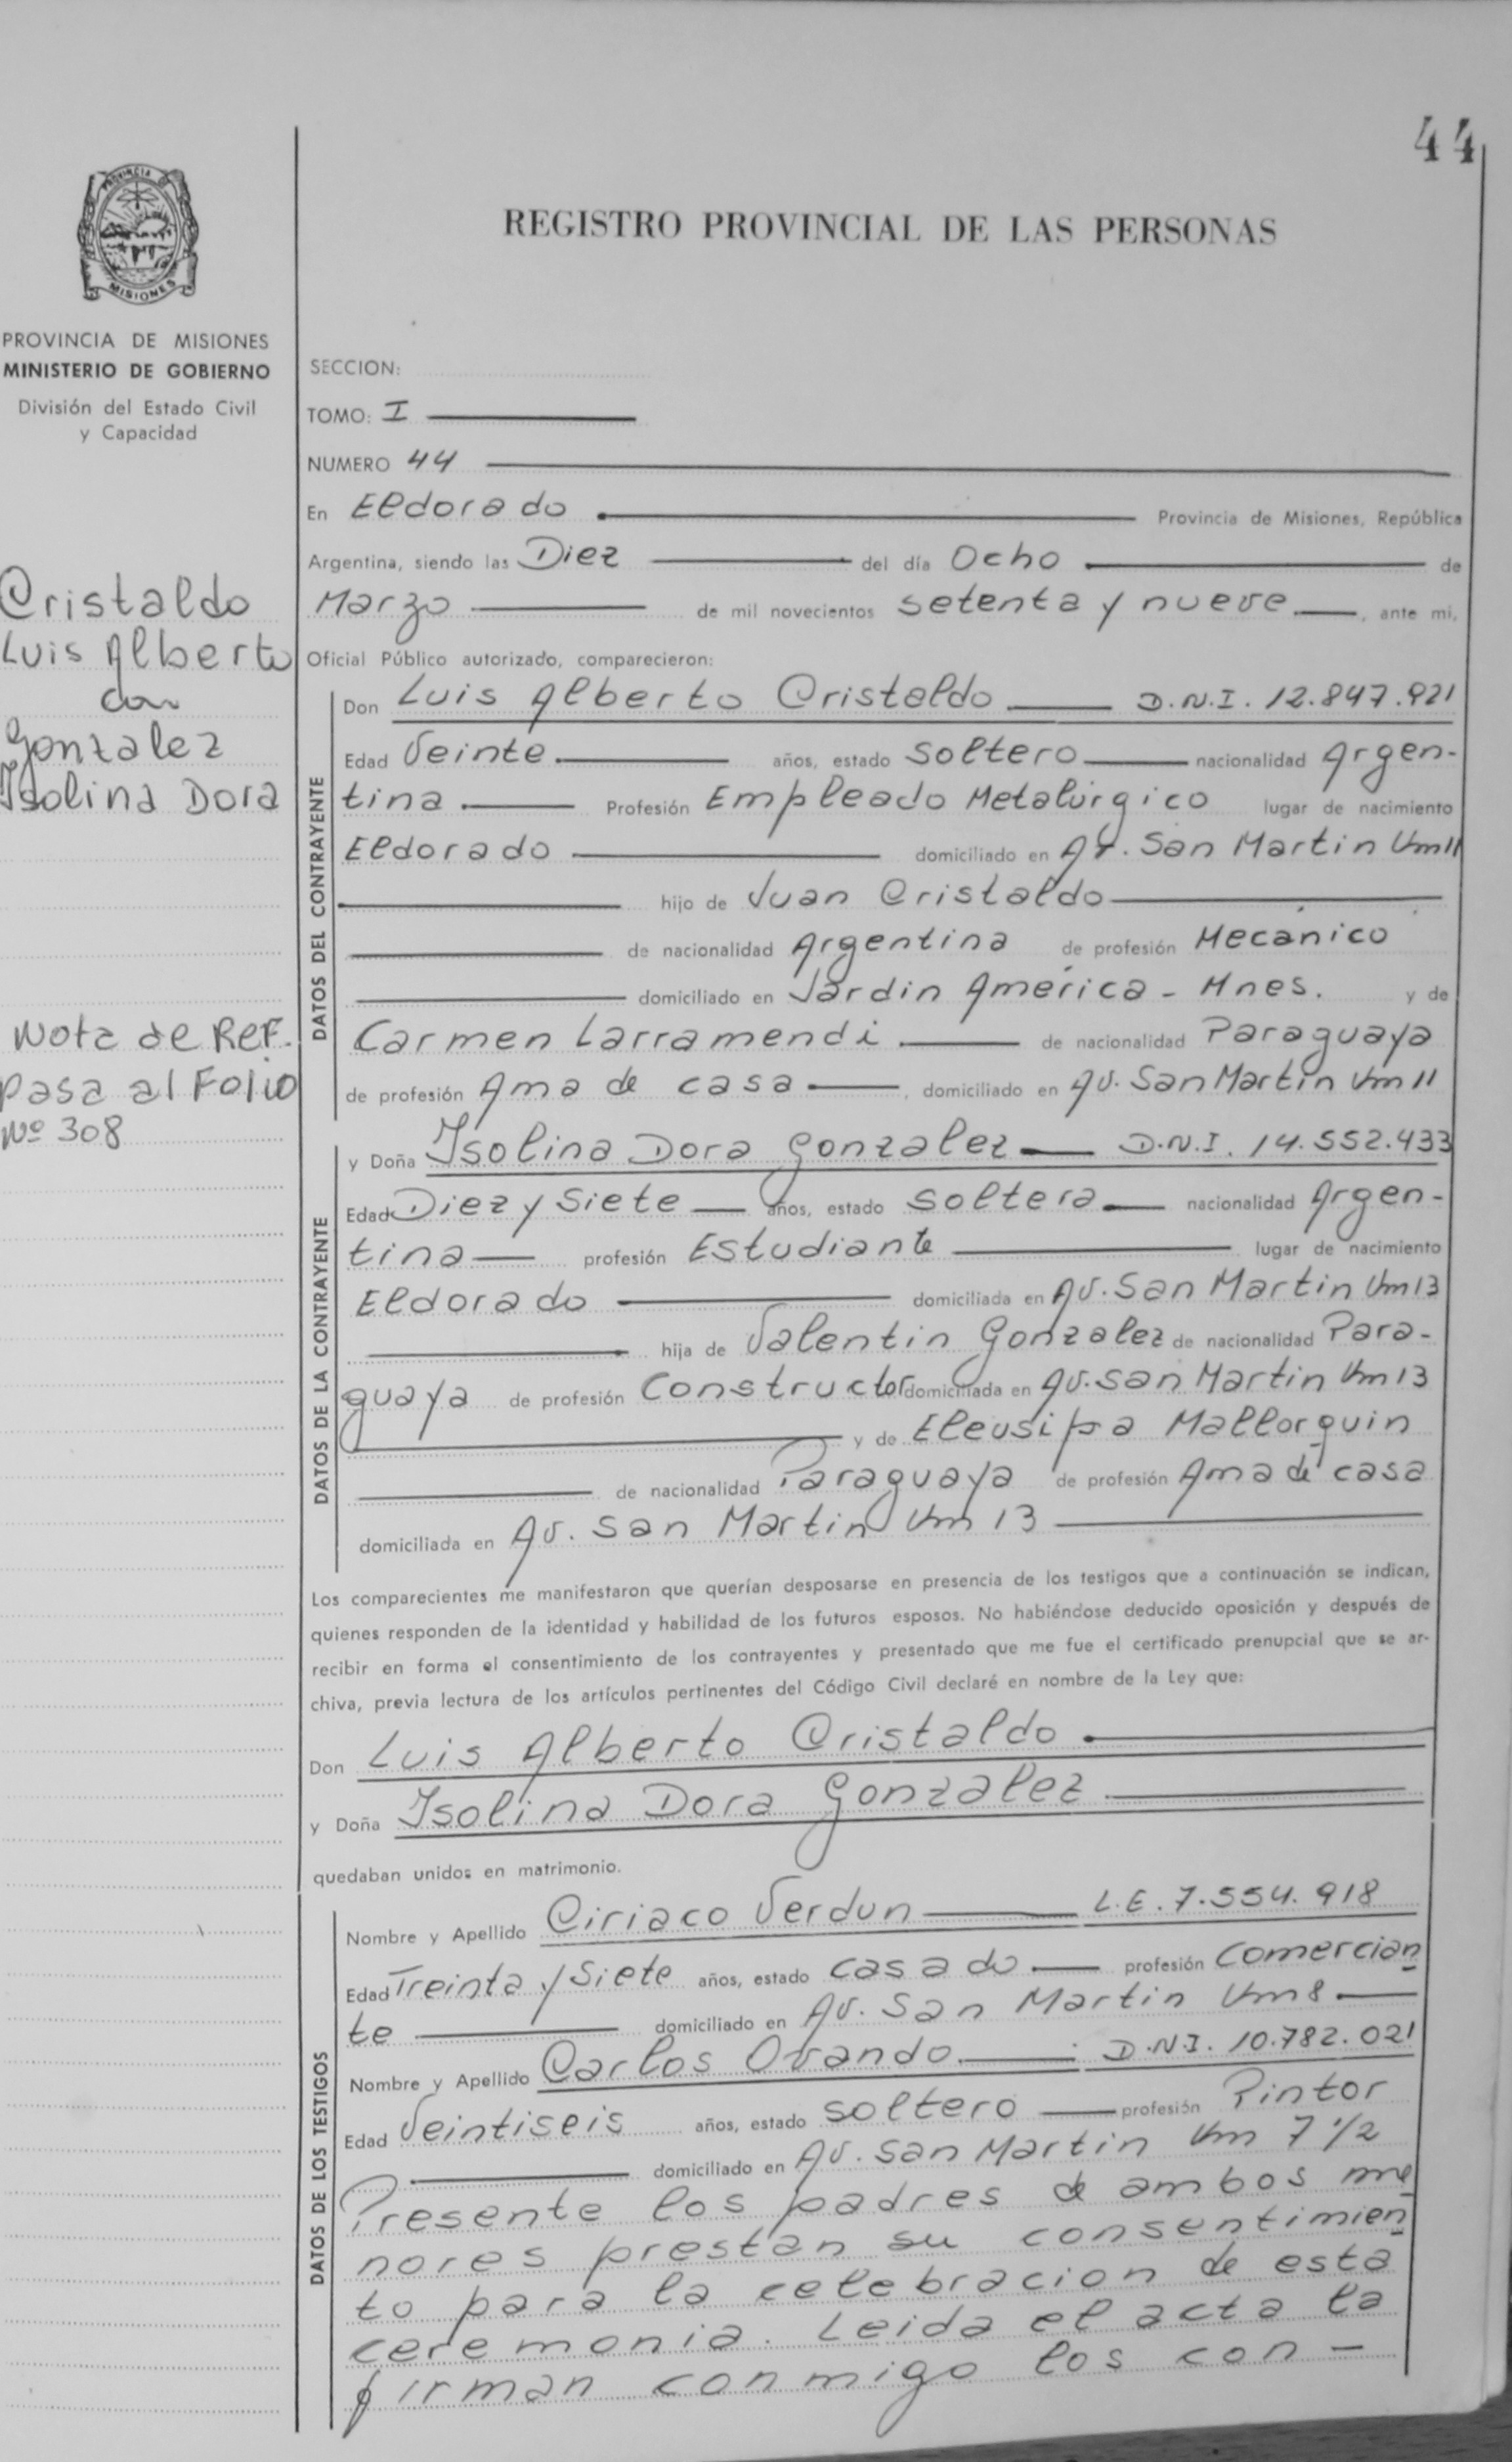 44
PROVINCIA DE
MISIONES
REGISTRO PROVINCIAL DE LAS PERSONAS
PROVINCIA DE MISIONES
MINISTERIO DE GOBIERNO
División del Estado Civil
y Capacidad
Cristaldo
Luis Alberto
con
Gonzalez
Isolina Dora
Nota de Ref.
pasa al Folio
Nº 308
SECCION:
TOMO: I
NUMERO 44
En Eldorado Provincia de Misiones, República
Argentina, siendo las Diez del día Ocho de
Marzo de mil novecientos setenta y nueve, ante mi,
Oficial Público autorizado, comparecieron:
DATOS DEL CONTRAYENTE
Don Luis Alberto Cristaldo D.N.I. 12.847.921
Edad Veinte años, estado soltero nacionalidad Argen-
tina Profesión Empleado Metalúrgico lugar de nacimiento
Eldorado domiciliado en Av. San Martin Km 11
hijo de Juan Cristaldo
de nacionalidad Argentina de profesión Mecánico
domiciliado en Jardin América - Mnes. y de
Carmen Larramendi de nacionalidad Paraguaya
de profesión Ama de casa, domiciliado en Av. San Martin Km 11
DATOS DE LA CONTRAYENTE
y Doña Isolina Dora Gonzalez D.N.I. 14.552.433
Edad Diez y Siete años, estado soltera nacionalidad Argen-
tina profesión Estudiante lugar de nacimiento
Eldorado domiciliada en Av. San Martin Km 13
hija de Valentin Gonzalez de nacionalidad Para-
guaya de profesión Constructor domiciliada en Av. San Martin Km 13
y de Eleusipa Mallorquin
de nacionalidad Paraguaya de profesión Ama de casa
domiciliada en Av. San Martin Km 13
Los comparecientes me manifestaron que querían desposarse en presencia de los testigos que a continuación se indican,
quienes responden de la identidad y habilidad de los futuros esposos. No habiéndose deducido oposición y después de
recibir en forma el consentimiento de los contrayentes y presentado que me fue el certificado prenupcial que se ar-
chiva, previa lectura de los artículos pertinentes del Código Civil declaré en nombre de la Ley que:
Don Luis Alberto Cristaldo
y Doña Isolina Dora Gonzalez
quedaban unidos en matrimonio.
DATOS DE LOS TESTIGOS
Nombre y Apellido Ciriaco Verdun L.E. 7.554.918
Edad Treinta y Siete años, estado casado profesión Comercian
te domiciliado en Av. San Martin Km 8
Nombre y Apellido Carlos Ovando D.N.I. 10.782.021
Edad Veintiseis años, estado soltero profesión Pintor
domiciliado en Av. San Martin Km 7 1/2
Presente los padres de ambos me
nores prestan su consentimien
to para la celebracion de esta
ceremonia. Leida el acta la
firman conmigo los con-